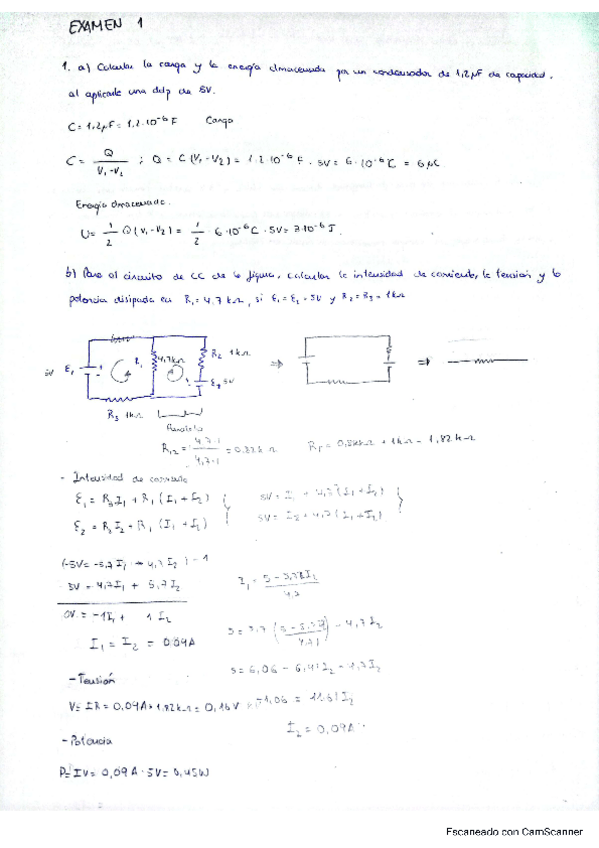 EXAMEN 1
1. a) Calcular la carga y la energía almacenada por un condensador de 1,2μF de capacidad,
al aplicarle una ddp de 5V.
C = 1,2μF = 1.2·10⁻⁶ F Carga
C = Q / V₁-V₂ ; Q = C (V₁-V₂) = 1.2·10⁻⁶ F · 5V = 6·10⁻⁶ C = 6 μC
Energía almacenada.
U = 1/2 Q (V₁-V₂) = 1/2 · 6·10⁻⁶ C · 5V = 3·10⁻⁶ J.
b) Para el circuito de CC de la figura, calcular la intensidad de corriente, la tensión y la
potencia disipada en R₁ = 4,7 kΩ, si ε₁ = ε₂ = 5V y R₂ = R₃ = 1kΩ
ε₁ R₁ 4,7kΩ R₂ 1kΩ
ε₂ 5V
⇒ ⇒
R₃ 1kΩ
Paralelo
R₁₂ = 4,7·1 / 4,7+1 = 0.82k Ω RT = 0,82kΩ + 1kΩ = 1,82 kΩ
- Intensidad de corriente
ε₁ = R₃I₁ + R₁ (I₁ + I₂) 5V = I₁ + 4,7 (I₁ + I₂)
ε₂ = R₂I₂ + R₁ (I₁ + I₂) 5V = I₂ + 4,7 (I₁ + I₂)
(-5V = -5,7 I₁ + 4,7 I₂) -1
5V = 4,7I₁ + 5,7 I₂
0V = -1I₁ + 1 I₂
I₁ = I₂ = 0.09A
- Tensión
V = IR = 0,09A · 1,82kΩ = 0,16V
I₂ = 0,09A
- Potencia
P = IV = 0,09 A · 5V = 0,45W
Escaneado con CamScanner